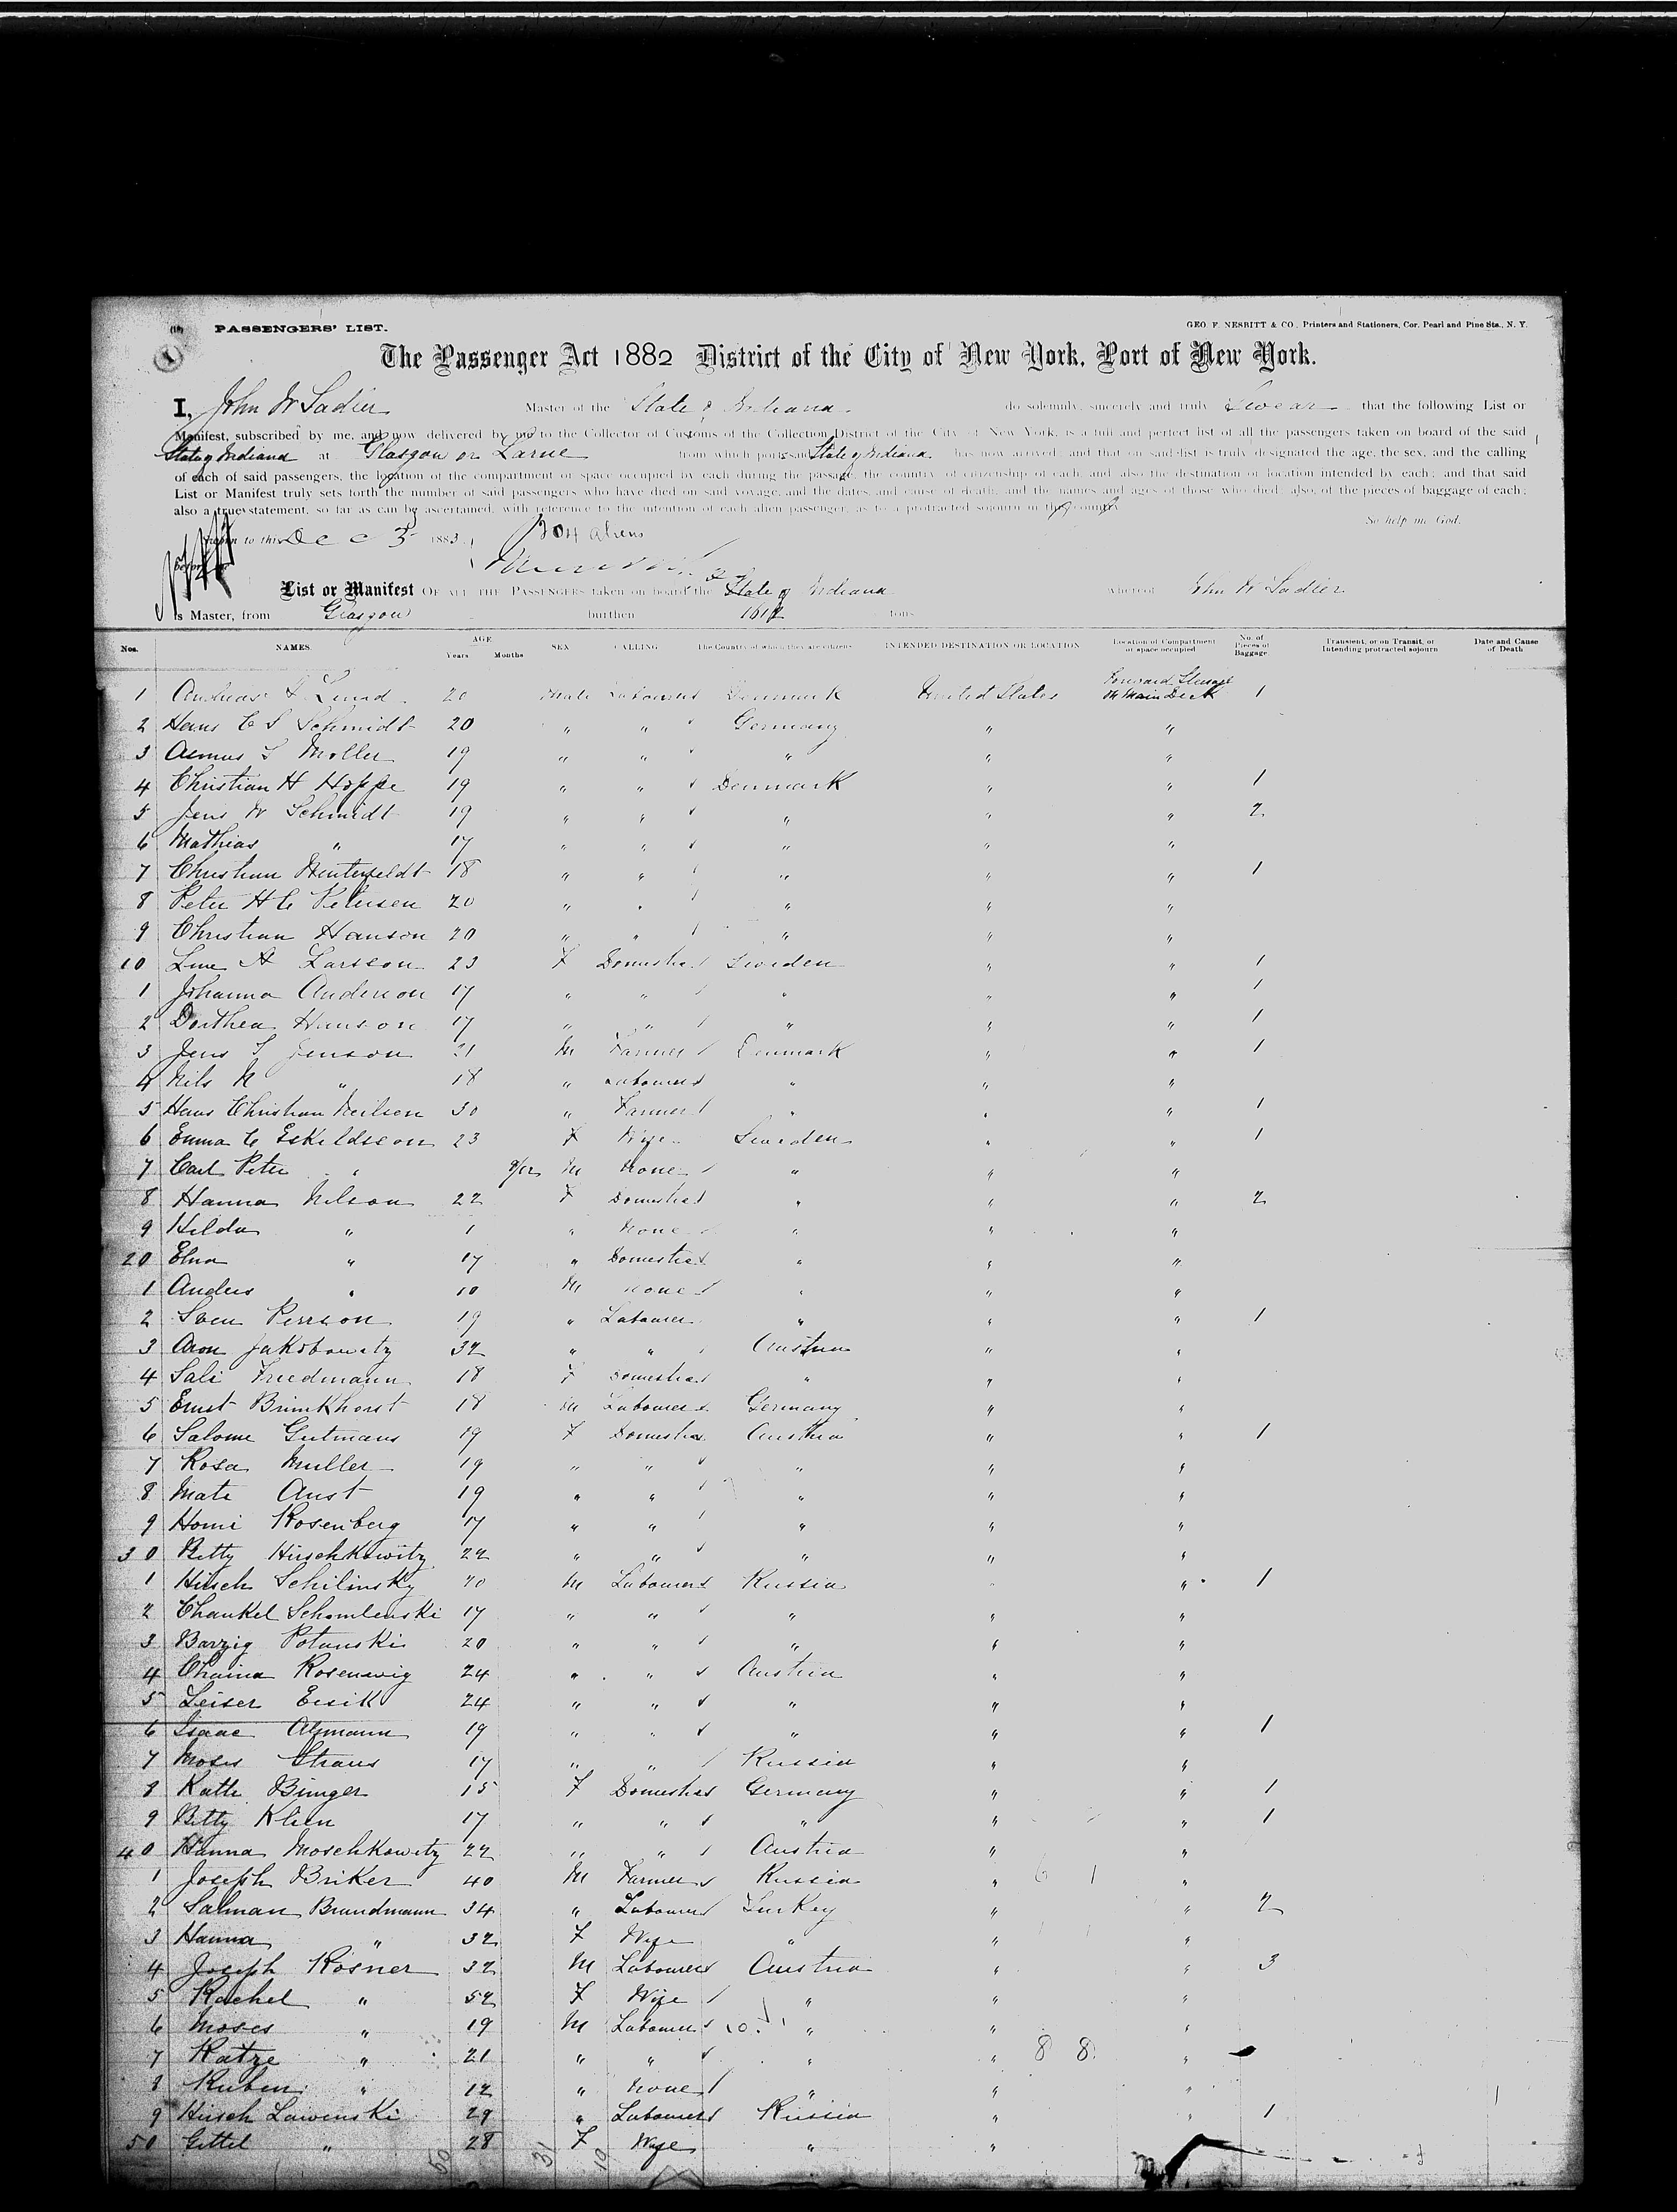 PASSENGERS' LIST.
GEO. F. NESBITT & CO., Printers and Stationers, Cor. Pearl and Pine Sts., N. Y.
The Passenger Act 1882 District of the City of New York, Port of New York.
I, John W Sadler Master of the State of Indiana do solemnly, sincerely and truly Swear that the following List or
Manifest, subscribed by me, and now delivered by me to the Collector of Customs of the Collection District of the City of New York, is a full and perfect list of all the passengers taken on board of the said
State of Indiana at Glasgow or Larne from which port said State of Indiana has now arrived and that on said list is truly designated the age, the sex, and the calling
of each of said passengers, the location of the compartment or space occupied by each during the passage, the country of citizenship of each, and also the destination or location intended by each; and that said
List or Manifest truly sets forth the number of said passengers who have died on said voyage, and the dates, and cause of death, and the names and ages of those who died; also, of the pieces of baggage of each;
also a true statement, so far as can be ascertained, with reference to the intention of each alien passenger, as to a protracted sojourn in this country
So help me God.
Sworn to this Dec 3 1883
aliens
List or Manifest OF ALL THE PASSENGERS taken on board the State of Indiana whereof John W Sadler
is Master, from Glasgow burthen tons
Nos. NAMES. AGE Years Months SEX CALLING The Country of which they are citizens INTENDED DESTINATION OR LOCATION Location of Compartment or space occupied No. of Pieces of Baggage Transient, or on Transit, or Intending protracted sojourn Date and Cause of Death
1 Lund 20 Male Labourer Denmark United States Forward Steerage on Main Deck 1
2 Hans C S Schmidt 20 " " Germany " "
3 Asmus S Moller 19 " " " " "
4 Christian H Hoppe 19 " " Denmark " " 1
5 Jens W Schmidt 19 " " " " " 2
6 Mathias " 17 " " " " "
7 Christian Hinterfeldt 18 " " " " " 1
8 Peter H C Petersen 20 " " " " "
9 Christian Hanson 20 " " " " "
10 Line A Larsson 23 F Domestic Sweden " " 1
1 Johanna Anderson 17 " " " " " 1
2 Dorthea Hanson 17 " " " " " 1
3 Jens S Jenson 21 M Farmer Denmark " " 1
4 Nils N " 18 " Labourer " " "
5 Hans Christian Neilsen 30 " Farmer " " " 1
6 Emma C Eskildsson 23 F Wife Sweden " " 1
7 Carl Peter " 9/12 M None " " "
8 Hanna Nilson 22 F Domestic " " " 2
9 Hilda " 1 " None " " "
20 Elna " 17 " Domestic " " "
1 Anders " 10 M None " " "
2 Sven Persson 19 " Labourer " " " 1
3 Aron Jakobowitz 32 " " Austria " "
4 Sali Friedmann 18 F Domestic " " "
5 Ernst Brinkhorst 18 M Labourer Germany " "
6 Salome Gutmans 19 F Domestic Austria " " 1
7 Rosa Muller 19 " " " " "
8 Mate Aust 19 " " " " "
9 Homi Rosenberg 17 " " " " "
30 Betty Hirschkowitz 22 " " " " "
1 Hirsch Schilinsky 20 M Labourer Russia " " 1
2 Chankel Schomlenski 17 " " " " "
3 Barzig Potanski 20 " " " " "
4 Chaina Rosenwig 24 " " Austria " "
5 Leiser Eisik 24 " " " " "
6 Isaac Altmann 19 " " " " " 1
7 Moses Straus 17 " " Russia " "
8 Kathe Binger 15 F Domestic Germany " " 1
9 Betty Klien 17 " " " " " 1
40 Hanna Moschkowitz 22 " " Austria " "
1 Joseph Briker 40 M Farmer Russia " 6 1 "
2 Salman Brandmann 34 " Labourer Turkey " " 2
3 Hanna " 32 F Wife " " "
4 Joseph Rosner 32 M Labourer Austria " " 3
5 Rachel " 52 F Wife " " "
6 Moses " 19 M Labourer " " "
7 Katze " 21 " " " " 8 8 "
8 Ruben " 12 " None " " "
9 Hirsch Lawinski 29 " Labourer Russia " " 1
50 Gittel " 28 F Wife " "
50 31 19